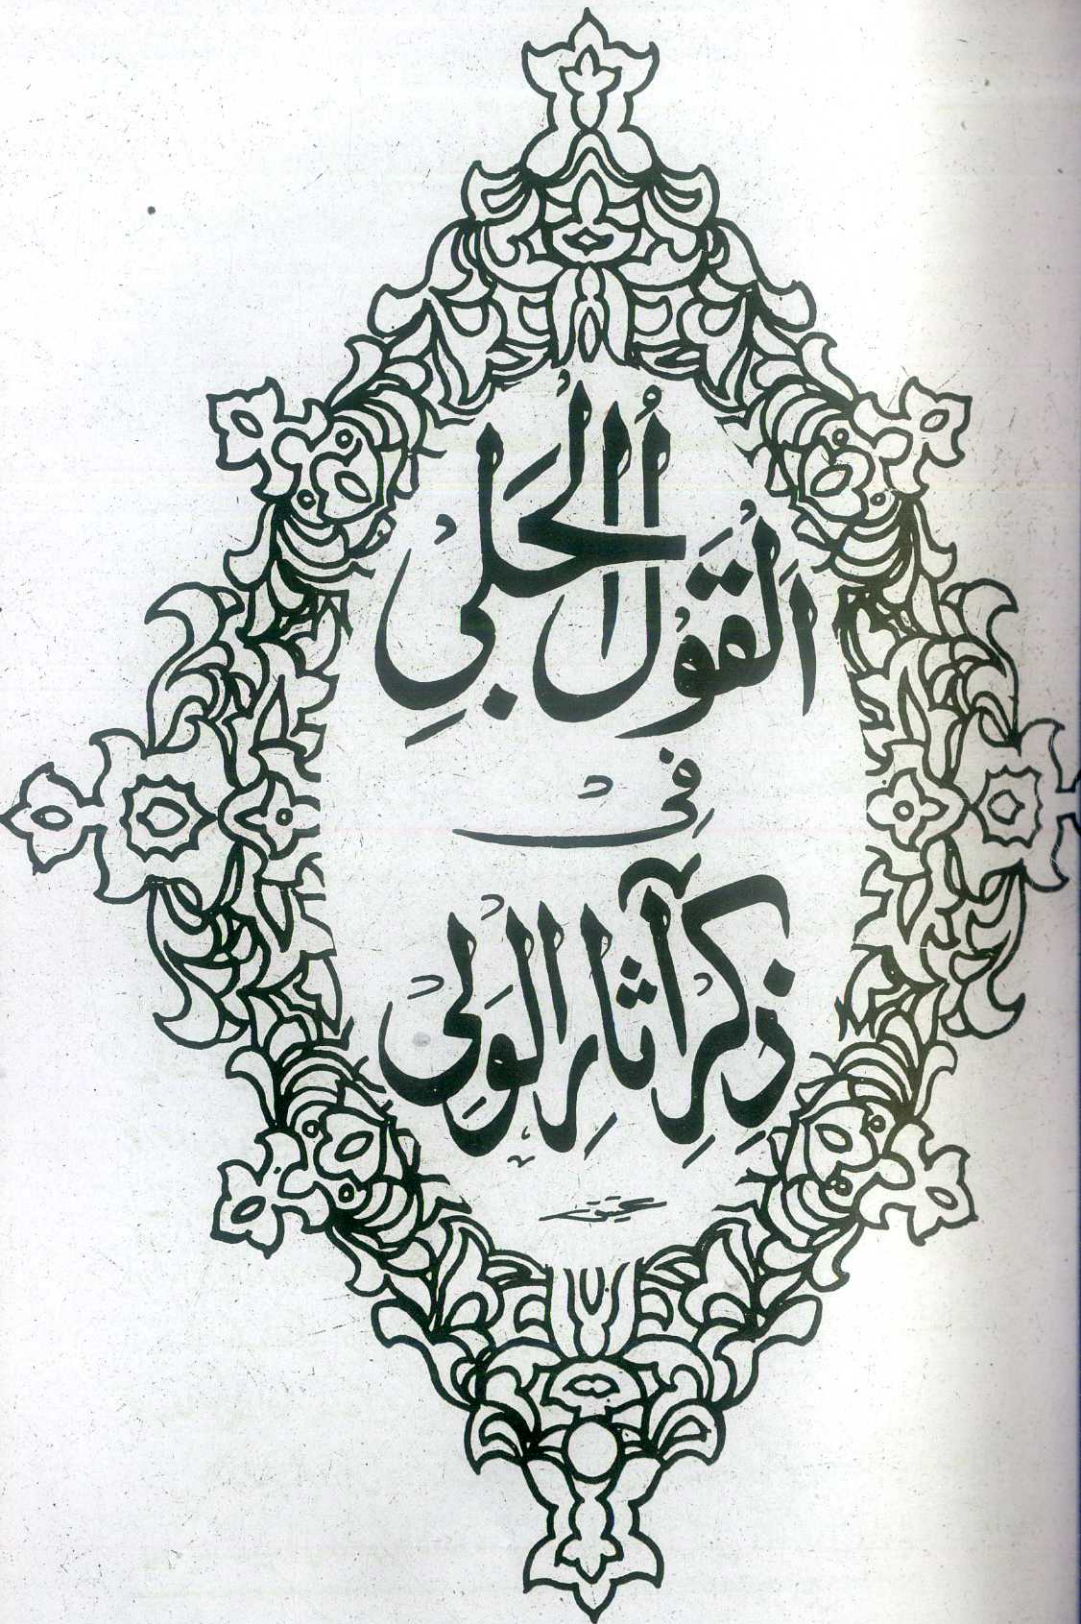 اَلْقَوْلُ الْجَلِی
فِی
ذِکْرِ آثَارِ الْوَلِی